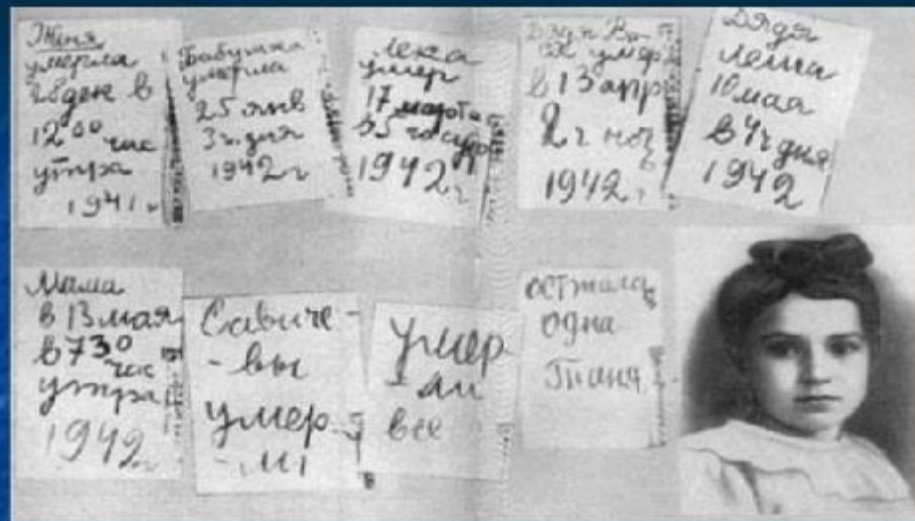 Женя
умерла
28 дек в
12 00 час
утра
1941 г
Бабушка
умерла
25 янв
3 ч. дня
1942 г
Лека
умер
17 марта
в 5 час утр
1942 г
Дядя Ва
ся умер
в 13 апр
2 ч ноч
1942 г
Дядя
Леша
10 мая
в 4 ч дня
1942
Мама
в 13 мая
в 7 30
час
утра
1942 г
Савиче-
-вы
умер-
-ли
умер
ли
все
осталась
одна
Таня